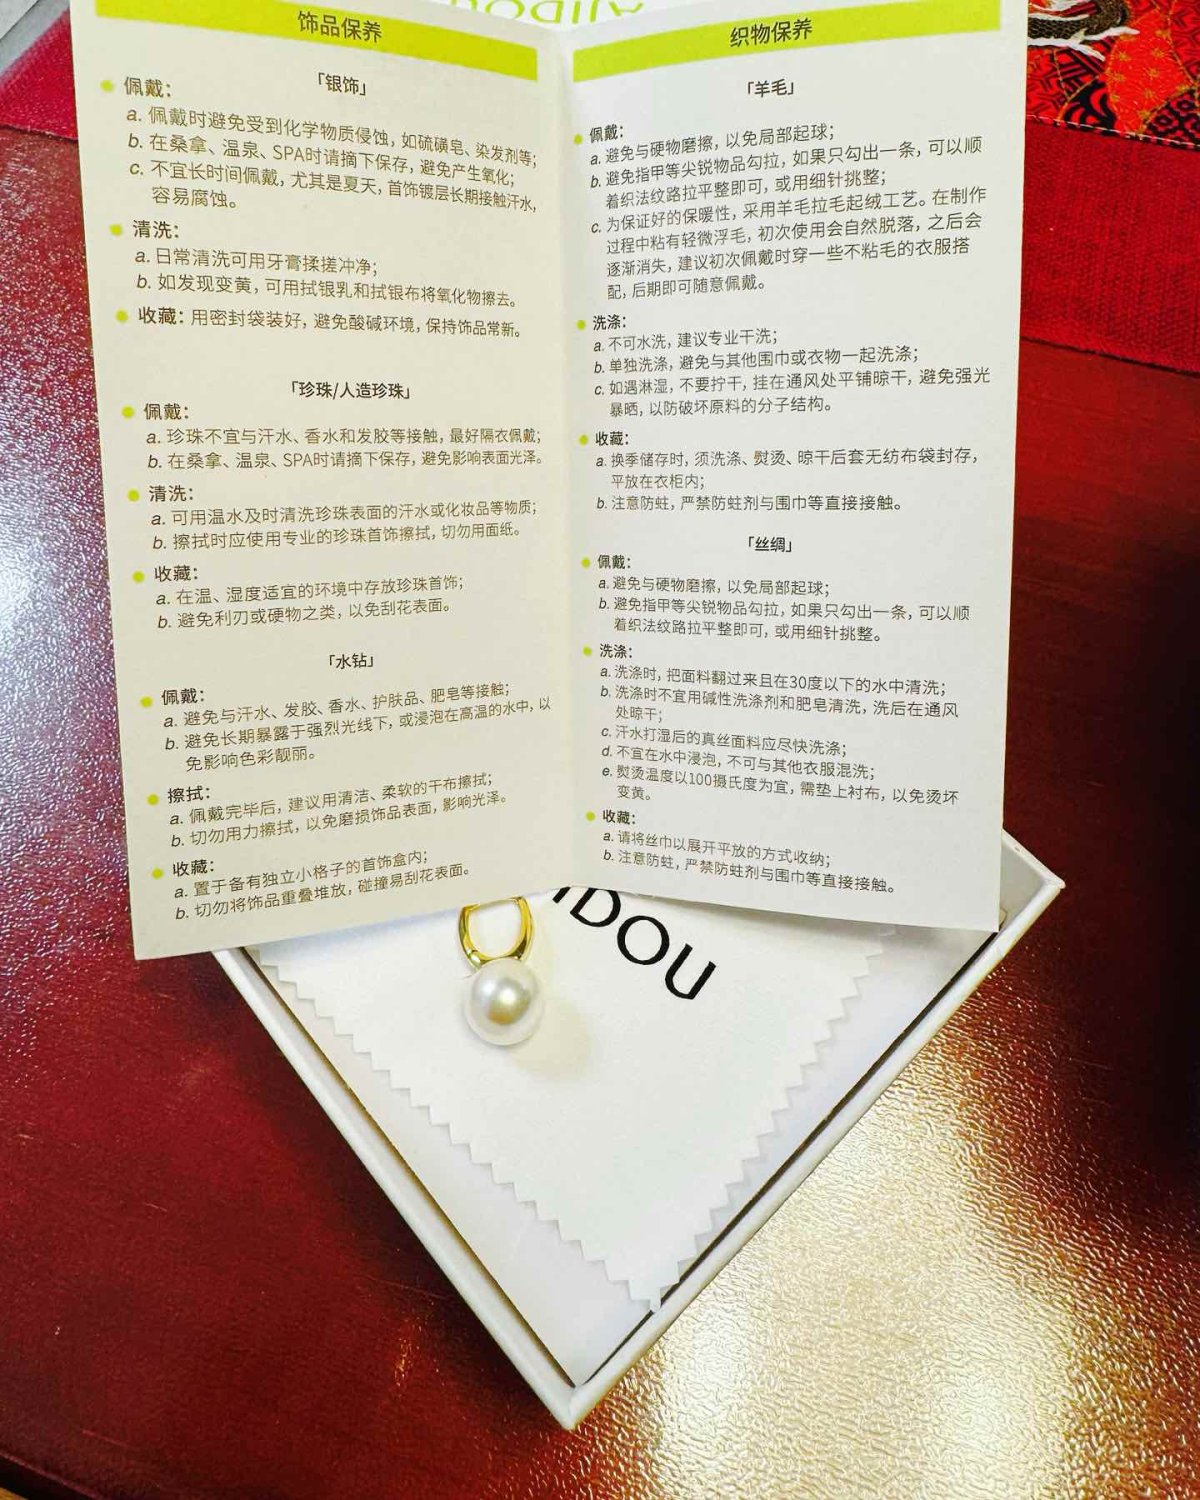 AJIDOU
饰品保养
「银饰」
佩戴：
a. 佩戴时避免受到化学物质侵蚀，如硫磺皂、染发剂等；
b. 在桑拿、温泉、SPA时请摘下保存，避免产生氧化；
c. 不宜长时间佩戴，尤其是夏天，首饰镀层长期接触汗水，
容易腐蚀。
清洗：
a. 日常清洗可用牙膏揉搓冲净；
b. 如发现变黄，可用拭银乳和拭银布将氧化物擦去。
收藏：用密封袋装好，避免酸碱环境，保持饰品常新。
「珍珠/人造珍珠」
佩戴：
a. 珍珠不宜与汗水、香水和发胶等接触，最好隔衣佩戴；
b. 在桑拿、温泉、SPA时请摘下保存，避免影响表面光泽。
清洗：
a. 可用温水及时清洗珍珠表面的汗水或化妆品等物质；
b. 擦拭时应使用专业的珍珠首饰擦拭，切勿用面纸。
收藏：
a. 在温、湿度适宜的环境中存放珍珠首饰；
b. 避免利刃或硬物之类，以免刮花表面。
「水钻」
佩戴：
a. 避免与汗水、发胶、香水、护肤品、肥皂等接触；
b. 避免长期暴露于强烈光线下，或浸泡在高温的水中，以
免影响色彩靓丽。
擦拭：
a. 佩戴完毕后，建议用清洁、柔软的干布擦拭；
b. 切勿用力擦拭，以免磨损饰品表面，影响光泽。
收藏：
a. 置于备有独立小格子的首饰盒内；
b. 切勿将饰品重叠堆放，碰撞易刮花表面。
织物保养
「羊毛」
佩戴：
a. 避免与硬物磨擦，以免局部起球；
b. 避免指甲等尖锐物品勾拉，如果只勾出一条，可以顺
着织法纹路拉平整即可，或用细针挑整；
c. 为保证好的保暖性，采用羊毛拉毛起绒工艺。在制作
过程中粘有轻微浮毛，初次使用会自然脱落，之后会
逐渐消失，建议初次佩戴时穿一些不粘毛的衣服搭
配，后期即可随意佩戴。
洗涤：
a. 不可水洗，建议专业干洗；
b. 单独洗涤，避免与其他围巾或衣物一起洗涤；
c. 如遇淋湿，不要拧干，挂在通风处平铺晾干，避免强光
暴晒，以防破坏原料的分子结构。
收藏：
a. 换季储存时，须洗涤、熨烫、晾干后套无纺布袋封存，
平放在衣柜内；
b. 注意防蛀，严禁防蛀剂与围巾等直接接触。
「丝绸」
佩戴：
a. 避免与硬物磨擦，以免局部起球；
b. 避免指甲等尖锐物品勾拉，如果只勾出一条，可以顺
着织法纹路拉平整即可，或用细针挑整。
洗涤：
a. 洗涤时，把面料翻过来且在30度以下的水中清洗；
b. 洗涤时不宜用碱性洗涤剂和肥皂清洗，洗后在通风
处晾干；
c. 汗水打湿后的真丝面料应尽快洗涤；
d. 不宜在水中浸泡，不可与其他衣服混洗；
e. 熨烫温度以100摄氏度为宜，需垫上衬布，以免烫坏
变黄。
收藏：
a. 请将丝巾以展开平放的方式收纳；
b. 注意防蛀，严禁防蛀剂与围巾等直接接触。
IDOU